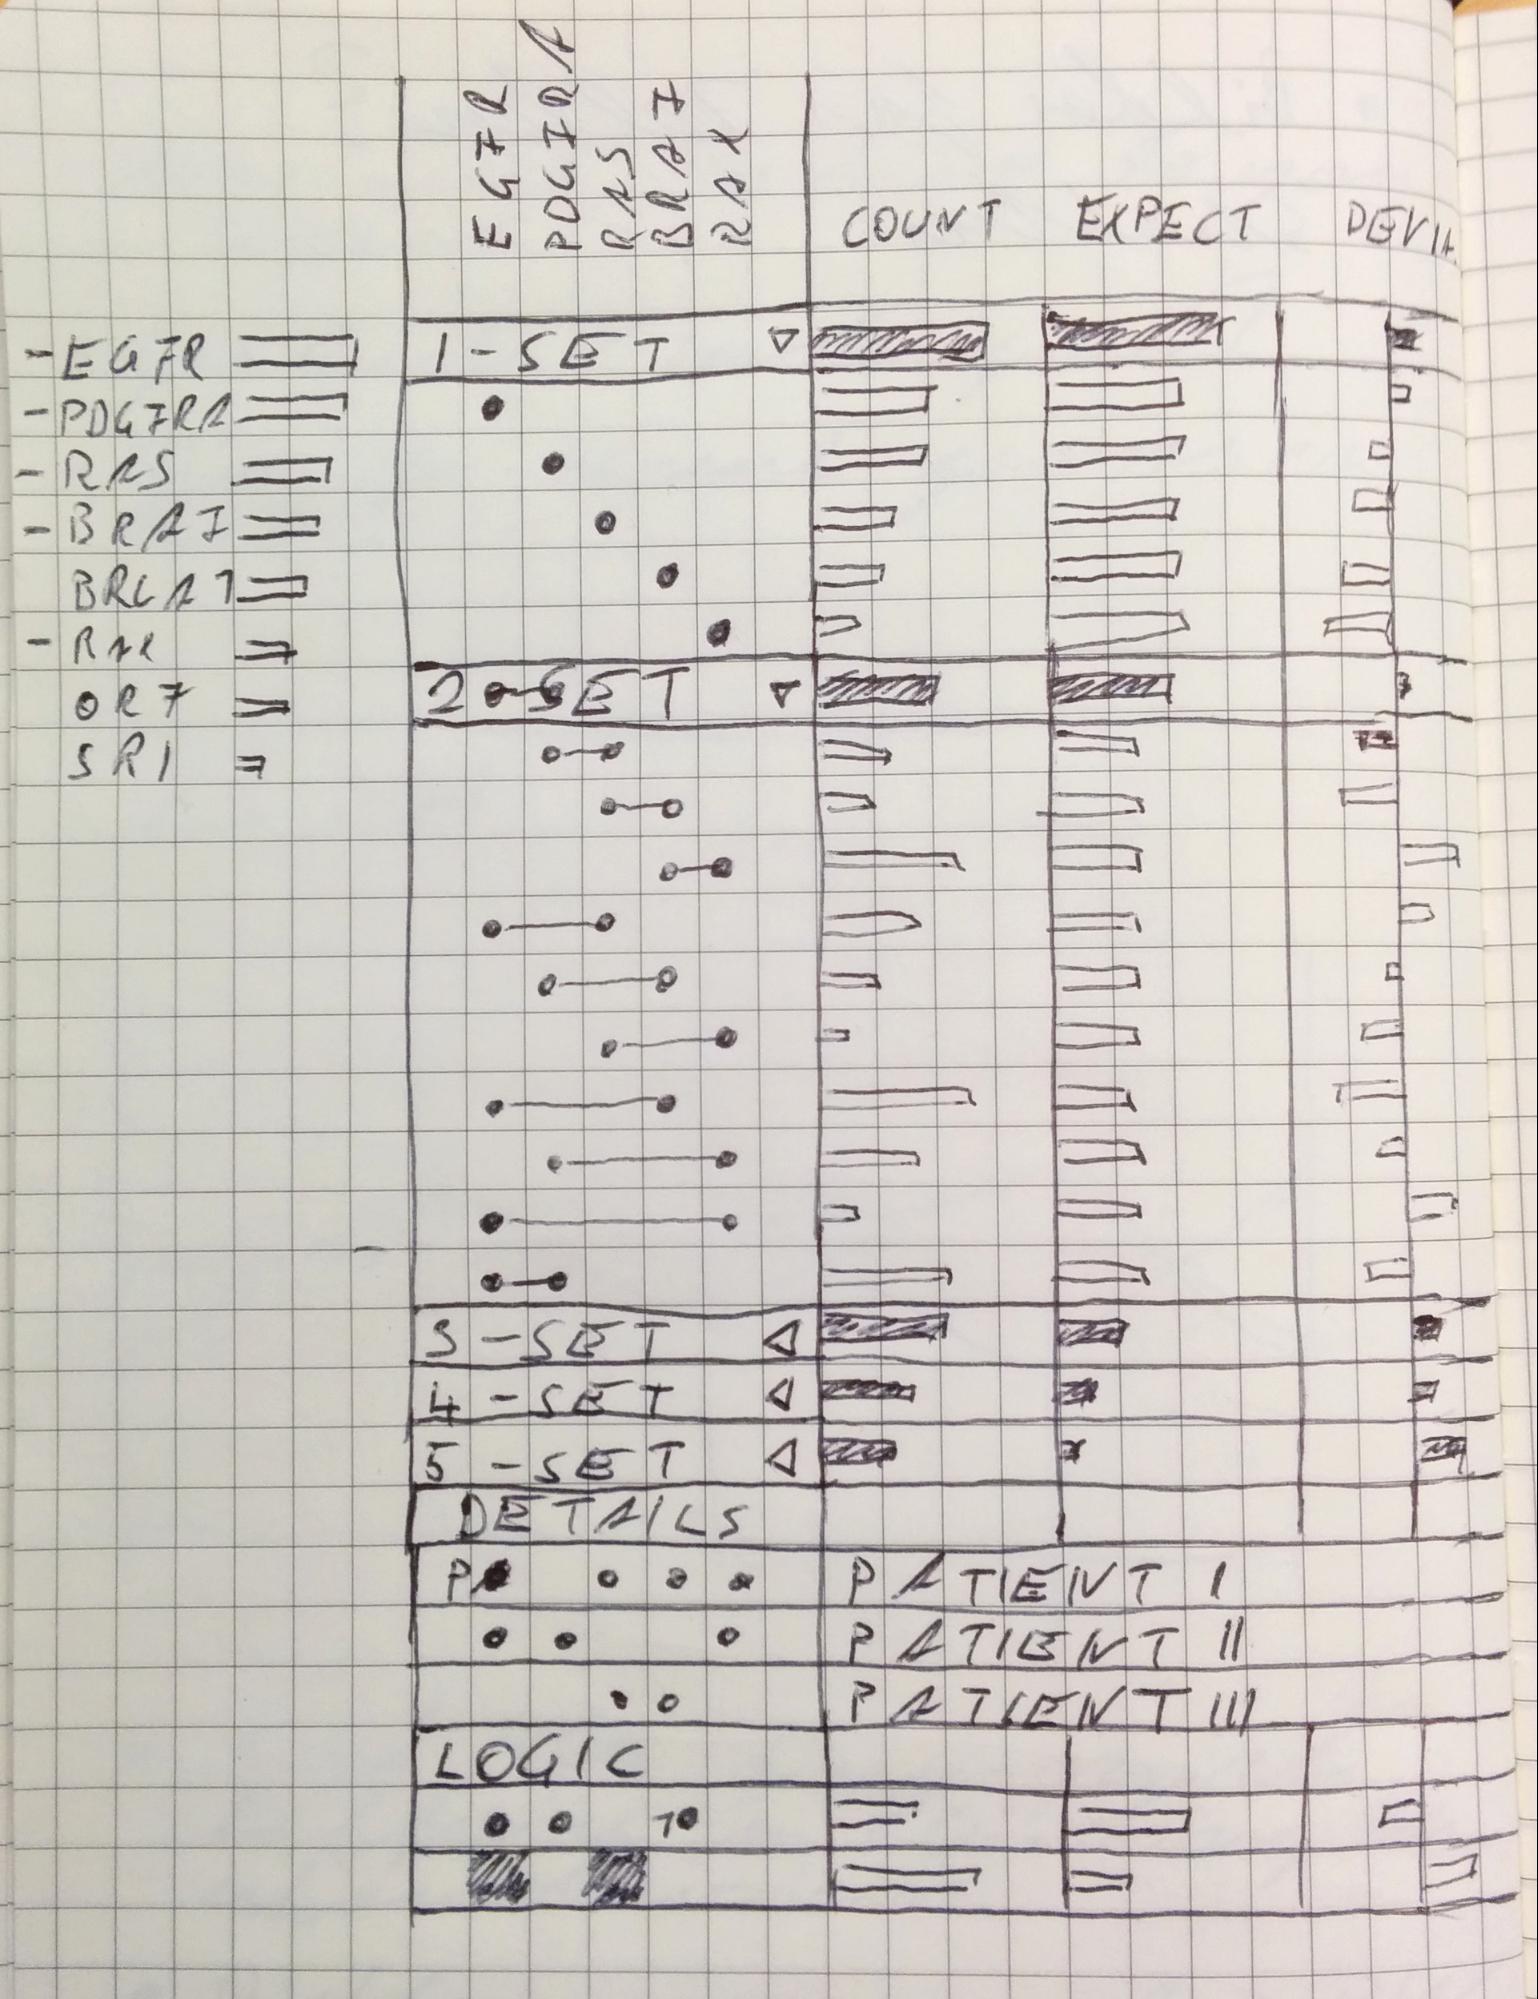 EGFR
PDGFRA
RAS
BRAF
RAK
COUNT EXPECT
EGFR
PDGFRA
RAS
BRAF
BRCA1
RAK
OR7
SR1
1-SET
2-SET
3-SET
4-SET
5-SET
DETAILS
PATIENT I
PATIENT II
PATIENT III
LOGIC